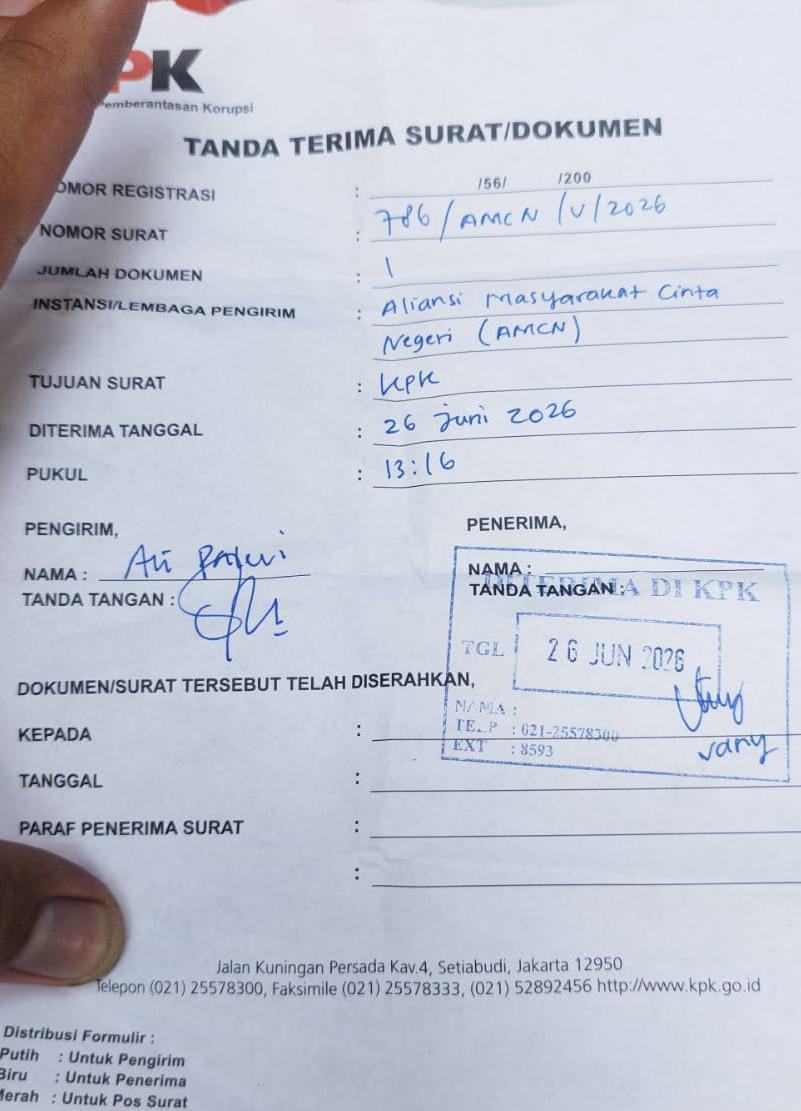 PK
Pemberantasan Korupsi
TANDA TERIMA SURAT/DOKUMEN
OMOR REGISTRASI : /56/ /200
NOMOR SURAT : 786/AMCN/V/2026
JUMLAH DOKUMEN : 1
INSTANSI/LEMBAGA PENGIRIM : Aliansi Masyarakat Cinta
Negeri (AMCN)
TUJUAN SURAT : KPK
DITERIMA TANGGAL : 26 Juni 2026
PUKUL : 13:16
PENGIRIM,
NAMA : Ali
TANDA TANGAN :
PENERIMA,
NAMA :
TANDA TANGAN :
DITERIMA DI KPK
TGL 26 JUN 2026
NAMA :
TELP : 021-25578300
EXT : 8593
vany
DOKUMEN/SURAT TERSEBUT TELAH DISERAHKAN,
KEPADA :
TANGGAL :
PARAF PENERIMA SURAT :
:
Jalan Kuningan Persada Kav.4, Setiabudi, Jakarta 12950
Telepon (021) 25578300, Faksimile (021) 25578333, (021) 52892456 http://www.kpk.go.id
Distribusi Formulir :
Putih : Untuk Pengirim
Biru : Untuk Penerima
Merah : Untuk Pos Surat